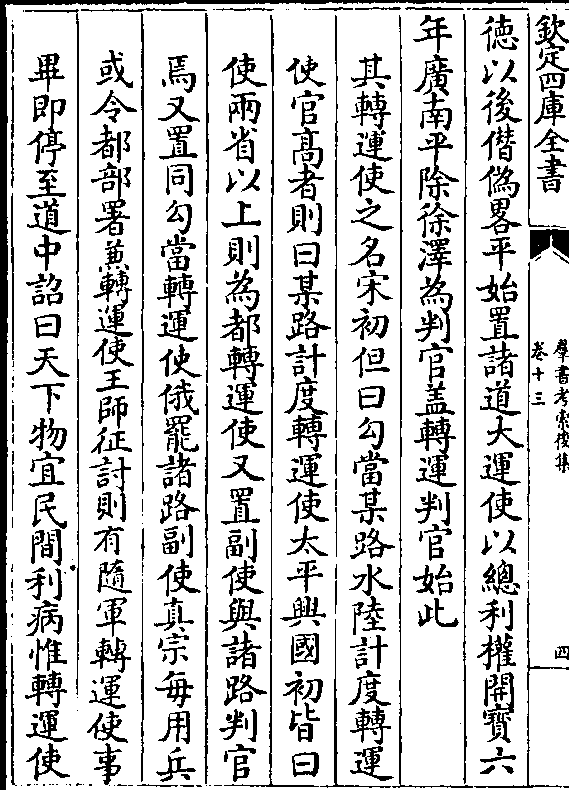 欽定四庫全書
羣書考索後集
卷十三
四
徳以後僭偽畧平始置諸道大運使以總利權開寳六
年廣南平除徐澤為判官盖轉運判官始此
其轉運使之名宋初但曰勾當某路水陸計度轉運
使官髙者則曰某路計度轉運使太平興國初皆曰
使兩省以上則為都轉運使又置副使與諸路判官
焉又置同勾當轉運使俄罷諸路副使真宗每用兵
或令都部署兼轉運使王師征討則有隨軍轉運使事
畢即停至道中詔曰天下物宜民間利病惟轉運使